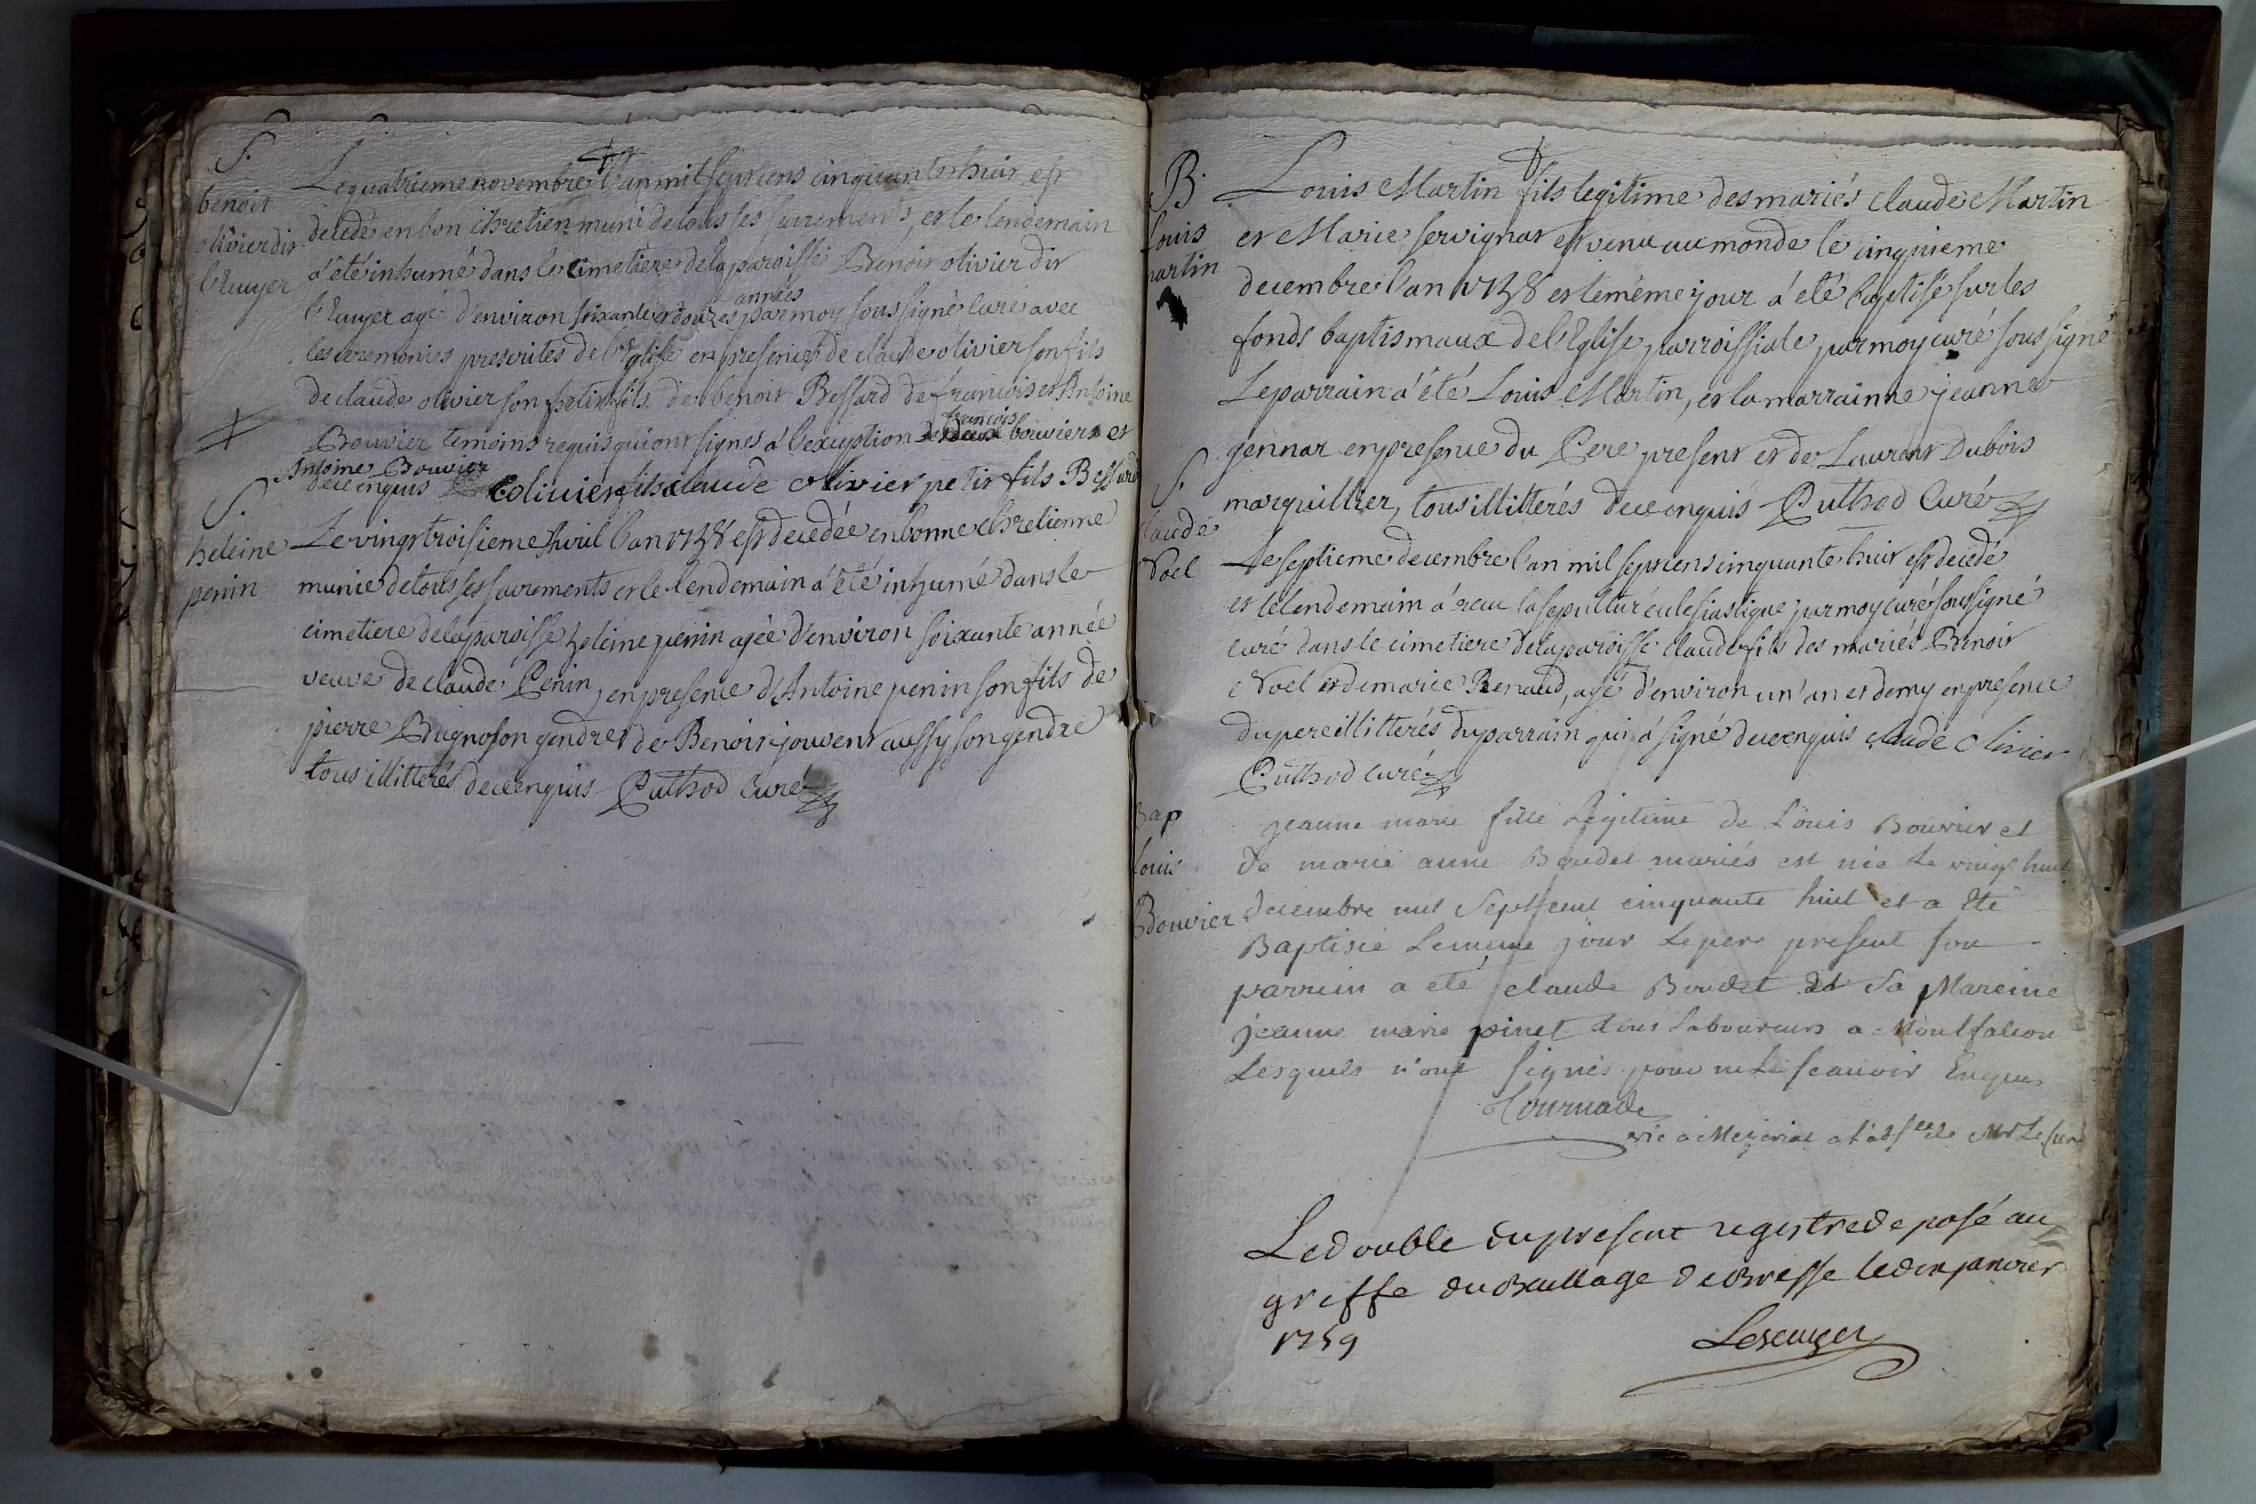 S.
benoit
olivier dit
l'Ecuyer
Le quatrieme novembre l'an mil sept cens cinquante huit est
decedé en bon chretien muni de tous ses sacrements, et le lendemain
a été inhumé dans le cimetiere de la paroisse Benoit olivier dit
l'Ecuyer agé d'environ soixante et douzes années par moy soussigné curé avec
les ceremonies prescrites de l'Eglise en presence de claude olivier son fils
de claude olivier son petit fils de benoit Bessard de francois et Antoine
Bouvier temoins requis qui ont signes a l'exception de francoise bouviers et
Antoine Bouvier
de ce enquis C olivier fils claude olivier petit fils Bessard
S.
heleine
penin
Le vingt troisieme Avril l'an 1758 est decedée en bonne chretienne
munie de tous ses sacrements et le lendemain a été inhumé dans le
cimetiere de la paroisse heleine penin agée d'environ soixante année
veuve de claude Penin, en presence d'Antoine penin son fils de
pierre Bugno son gendre de Benoit jouvent aussy son gendre
tous illitterés de ce enquis Puthod curé
B.
Louis
martin
Louis Martin fils legitime des mariés claude Martin
et Marie servignat est venu au monde le cinquieme
decembre l'an 1758 et le même jour a été baptisé sur les
fonds baptismaux de l'Eglise parroissiale par moy curé soussigné
Le parrain a été Louis Martin, et la marrainne jeanne
gennar en presence du Pere present et de Laurent Dubois
marquillier, tous illitterés de ce enquis Puthod Curé
S.
claude
Noel
Le septieme decembre l'an mil sept cens cinquante huit est decedé
et le lendemain a receu la sepulture eclesiastique par moy curé soussigné
curé dans le cimetiere de la paroisse claude fils des mariés Benoit
Noel et de marie Renaud, agé d'environ un an et demy en presence
du pere illitterés du parrain qui a signé de ce enquis claude olivier
Puthod curé
Bap
Louis
Bouvier
jeanne marie fille Legitime de Louis Bouvier et
de marie anne Boudet mariés est née Le vingt huit
decembre mil Sept cent cinquante huit et a été
Baptisée Le meme jour Le pere present son
parrein a eté claude Boudet et Sa Mareine
jeanne marie pinet tous Laboureurs a Montfalcon
Lesquels n'ont signés pour ne Le scauvoir Enquis
Tournade
vic a Mezeriat a l'absce de Mr Le Curé
Le double du present registre deposé au
greffe du Bailliage de Bresse le dix janvier
1759